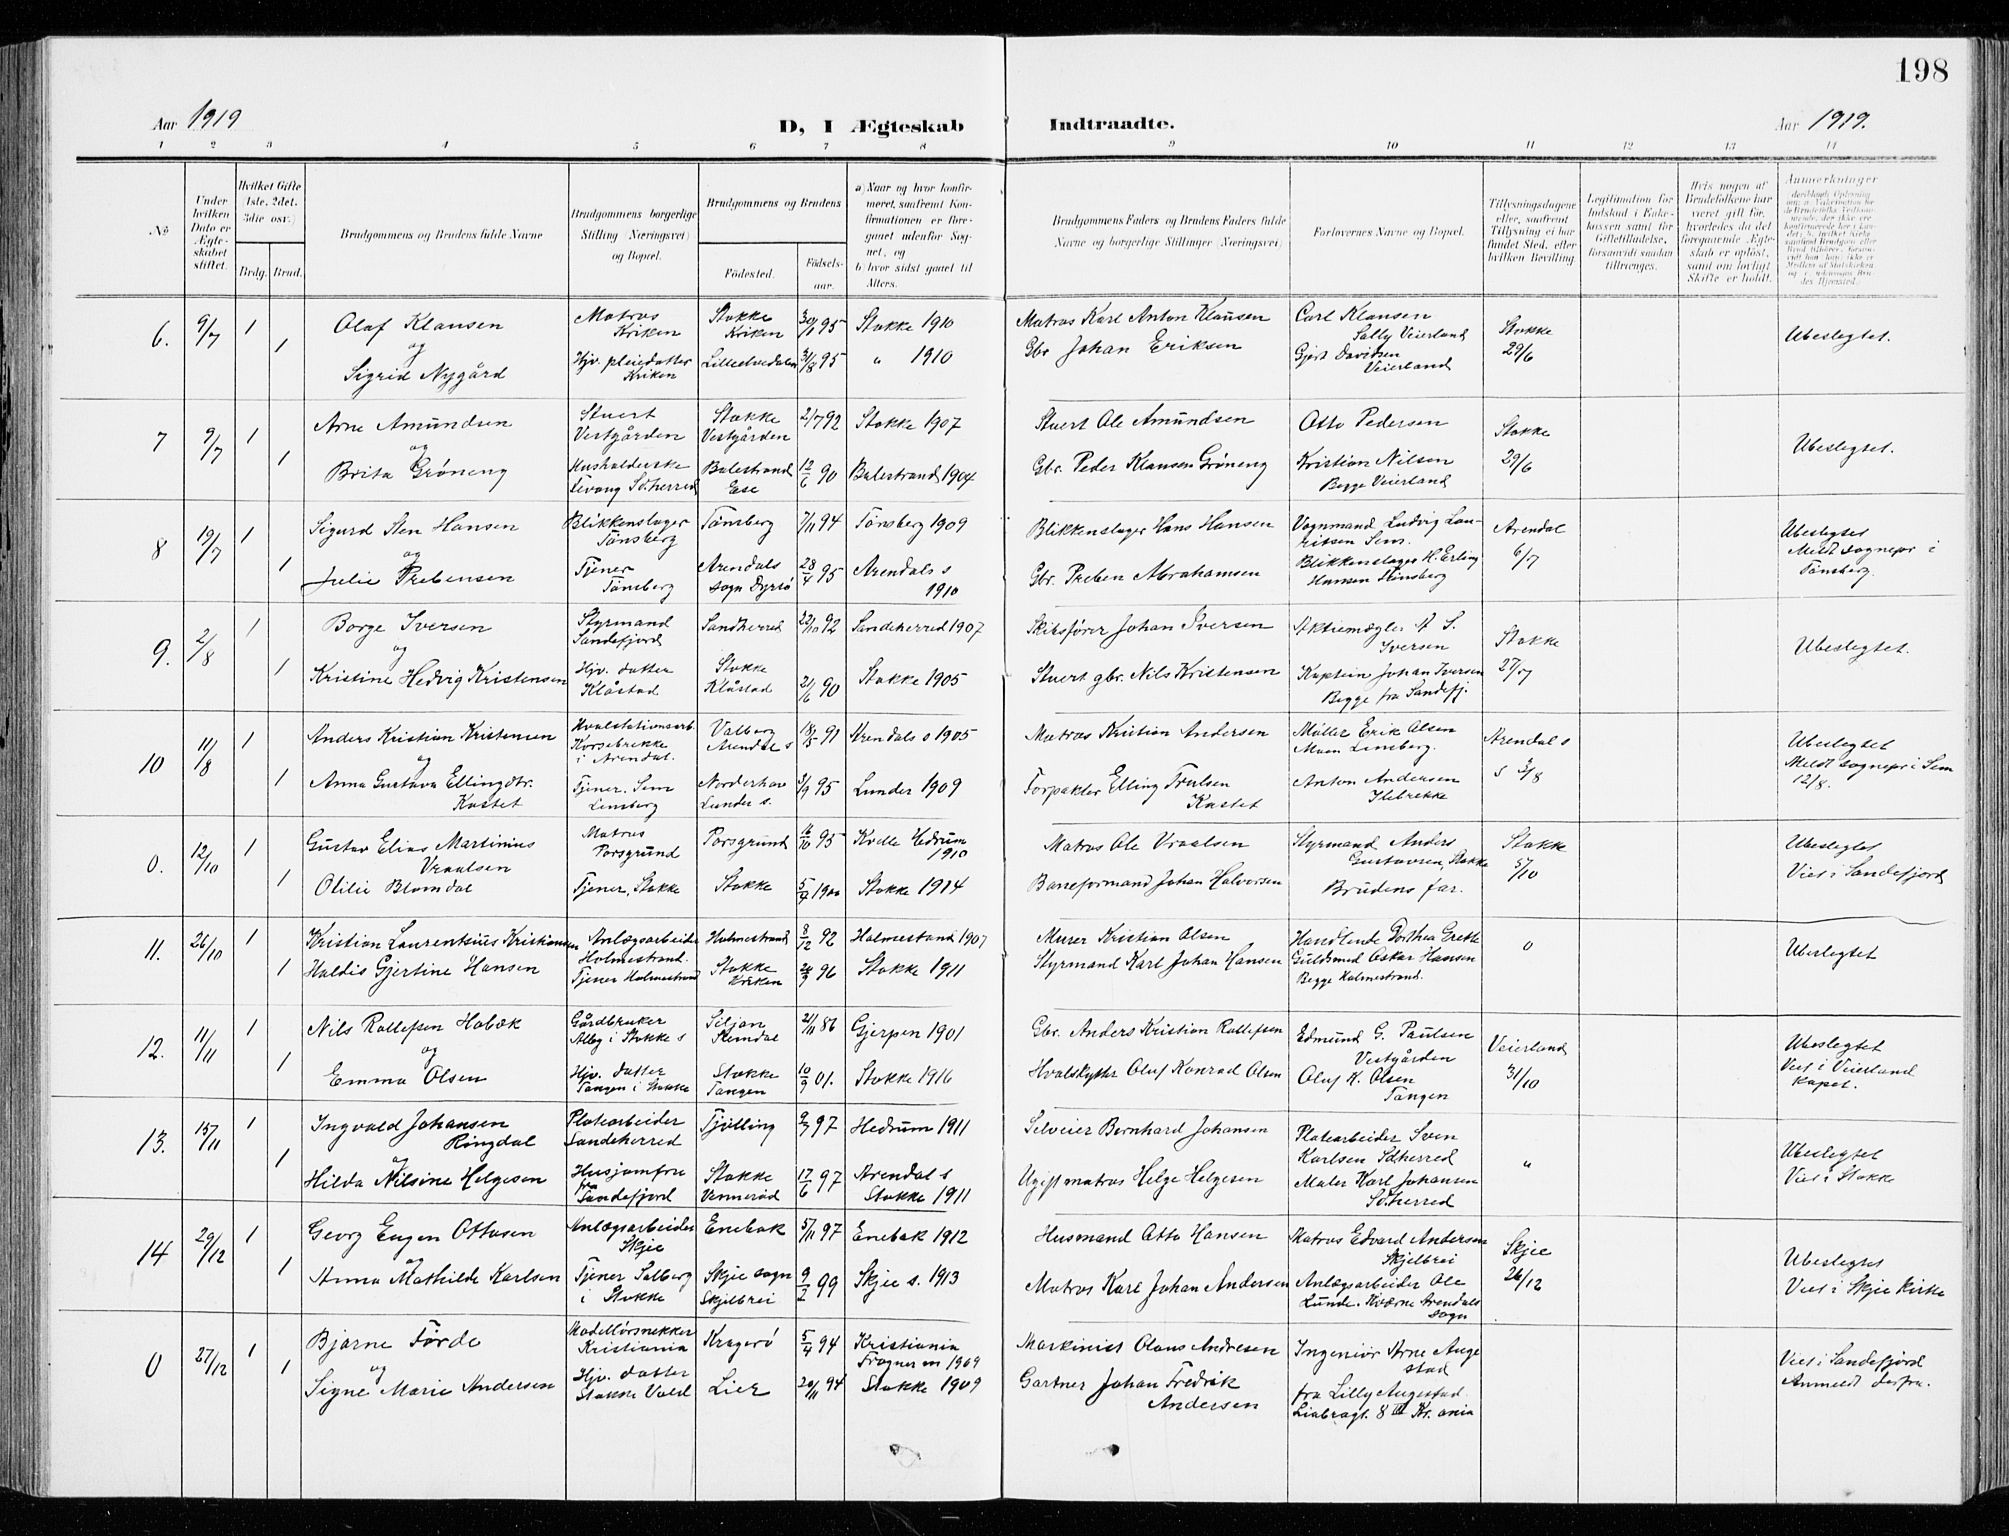 198
Aar 1919
D, I Ægteskab Indtraadte.
Aar 1919.
1 2 3 4 5 6 7 8 9 10 11 12 13 14
No
Under hvilken Dato er Ægteskabet stiftet.
Hvilket Gifte (1ste, 2det, 3die osv.)
Brdg. Brud.
Brudgommens og Brudens fulde Navne
Brudgommens borgerlige Stilling (Næringsvei) og Bopæl.
Brudgommens og Brudens
Fødested.
Fødselsaar.
a) Naar og hvor konfirmeret, saafremt Konfirmationen er foregaaet udenfor Sognet, og
b) hvor sidst gaaet til Alters.
Brudgommens Faders og Brudens Faders fulde Navne og borgerlige Stillinger (Næringsvei)
Forlovernes Navne og Bopæl.
Tillysningsdagene eller, saafremt Tillysning ei har fundet Sted, efter hvilken Bevilling
Legitimation for Indskud i Enkekassen samt for Giftetilladelse, forsaavidt saadan tiltrænges.
Hvis nogen af Brudefolkene har været gift før, hvorledes da det foregaaende Ægteskab er opløst, samt om lovligt Skifte er holdt.
Anmerkninger
6. 9/7 1 Olaf Klausen Matros Kriken Stokke Kriken 30/1 95 Stokke 1910 Matros Karl Anton Klausen Carl Klausen Sally Veierland Stokke 29/6 Ubeslegtet.
og
1 Sigrid Nygård Hjv. pleiedatter Kriken 31/8 95 " 1910 Gbr Johan Eriksen Gjert Davidsen Veierland
7 9/7 1 Arne Amundsen Stuert Vestgården Stokke Vestgården 2/7 92 Stokke 1907 Stuert Ole Amundsen Otto Pedersen Stokke 29/6 Ubeslegtet.
og
1 Brita Grøneng Husholderske Balestrand Ese 12/6 90 Balestrand 1904 Gbr. Peder Klausen Grøneng Kristian Nilsen Begge Veierland
8 19/7 1 Sigurd Sten Hansen Blikkenslager Tønsberg Tønsberg 7/11 94 Tønsberg 1909 Blikkenslager Hans Hansen Vognmand Ludvig Lauritsen Sem. Arendal 6/7 Ubeslegtet Meldt sognepr i Tønsberg.
og
1 Julie Prebensen Tjener Tønsberg Arendals sogn 28/4 95 Arendals s 1910 Gbr. Preben Abrahamsen Blikkenslager H. Erling Hansen
9. 2/8 1 Borge Iversen Styrmand Sandefjord Sandherred 22/10 92 Sandeherred 1907 Skibsfører Johan Iversen Aktiemægler A S. Iversen Stokke 27/7 Ubeslegtet.
og
1 Kristine Hedvig Kristensen Hjv. datter Klåstad Stokke Klåstad 21/6 90 Stokke 1905 Stuert gbr. Nils Kristensen Kaptein Johan Iversen Begge fra Sandefj.
10 11/8 1 Anders Kristian Kristensen Hvalstationsarb. Korsebrekke i Arendal. Valberg Arendal s 18/5 91 Arendals s 1905 Matros Kristian Andersen Møller Erik Olsen Arendal s 3/8 Ubeslegtet Meldt sognepr i Sem 12/8.
og
1 Anna Gustava Ellingdtr. Kastet Tjener. Sem Norderhov Lunder s. 3/9 95 Lunder 1909 Forpakter Elling Trulsen Kastet Anton Andersen
0. 12/10 1 Gustav Elias Martinius Vraalsen Matros Porsgrund Porsgrund 16/10 95 Kvelle Hedrum 1910 Matros Ole Vraalsen Styrmand Anders Gustavsen, Stokke Stokke 5/10 Ubeslegtet Viet i Sandefjord
1 Otilie Blomdal Tjener, Stokke Stokke 1900 Stokke 1914 Baneformand Johan Halvorsen Brudens far.
11. 26/10 1 Kristian Laurentsius Kristiansen Anlægsarbeider Holmestrand. Holmestrand 8/12 92 Holmestrand 1907 Murer Kristian Olsen Handlende Dorthea Grette 0 Ubeslegtet
1 Haldis Gjertine Hansen Tjener Holmestrand Stokke Kriken 96 Stokke 1911 Styrmand Karl Johan Hansen Guldsmed Oskar Hansen Begge Holmestrand.
12. 11/11 1 Nils Rollefsen Habæk Gårdbruker Alby i Stokke s Siljan 21/11 86 Gjerpen 1901 Gbr. Anders Kristian Rollefsen Edmund G. Paulsen Vestgården Veierland 31/10 Ubeslegtet Viet i Veierland kapel.
og
1 Emma Olsen Hjv. datter Tangen i Stokke Stokke Tangen 10/9 01. Stokke 1916 Hvalskytter Oluf Konrad Olsen Oluf K. Olsen Tangen
13. 15/11 Ingvald Johansen Ringdal Platearbeider Sandeherred Tjølling 97 Hedrum 1911 Bernhard Johansen Platearbeider Sven Karlsen Sdherred " Ubeslegtet Viet i Stokke
og
1 Hilda Nilsine Helgesen Husjomfru fra Sandefjord Stokke Vennerød 17/6 97 Arendal s Stokke 1911 Ugift matros Helge Helgesen Maler Karl Johansen Sdherred
14 29/12 1 Georg Eugen Ottosen Anlægsarbeider Skjee Enebak 5/11 97 Enebak 1912 Husmand Otto Hansen Matros Edvard Andersen Skjelbrei Skjee 26/12 Ubeslegtet Viet i Skjee kirke
og
1 Anna Mathilde Karlsen Tjener Solberg i Stokke Skjee sogn Skjelbrei 9/2 99 Skjee s. 1913 Matros Karl Johan Andersen Anlægsarbeider Ole Lunde. Kværne Arendals sogn
0 27/12 1 Bjarne Førde Modellørsnekker Kristiania Kragerø 5/4 94 Kristiania Frogner m 1909 Maskinist Olaus Andresen Ingeniør Arne Augestad Viet i Sandefjord Anmeldt derfra.
og
1 Signe Marie Andersen Hjv. datter Stokke Vold Lier 20/11 94 Stokke 1909 Gartner Johan Fredrik Andersen fra Lilly Augestad. 8 III Kr.ania